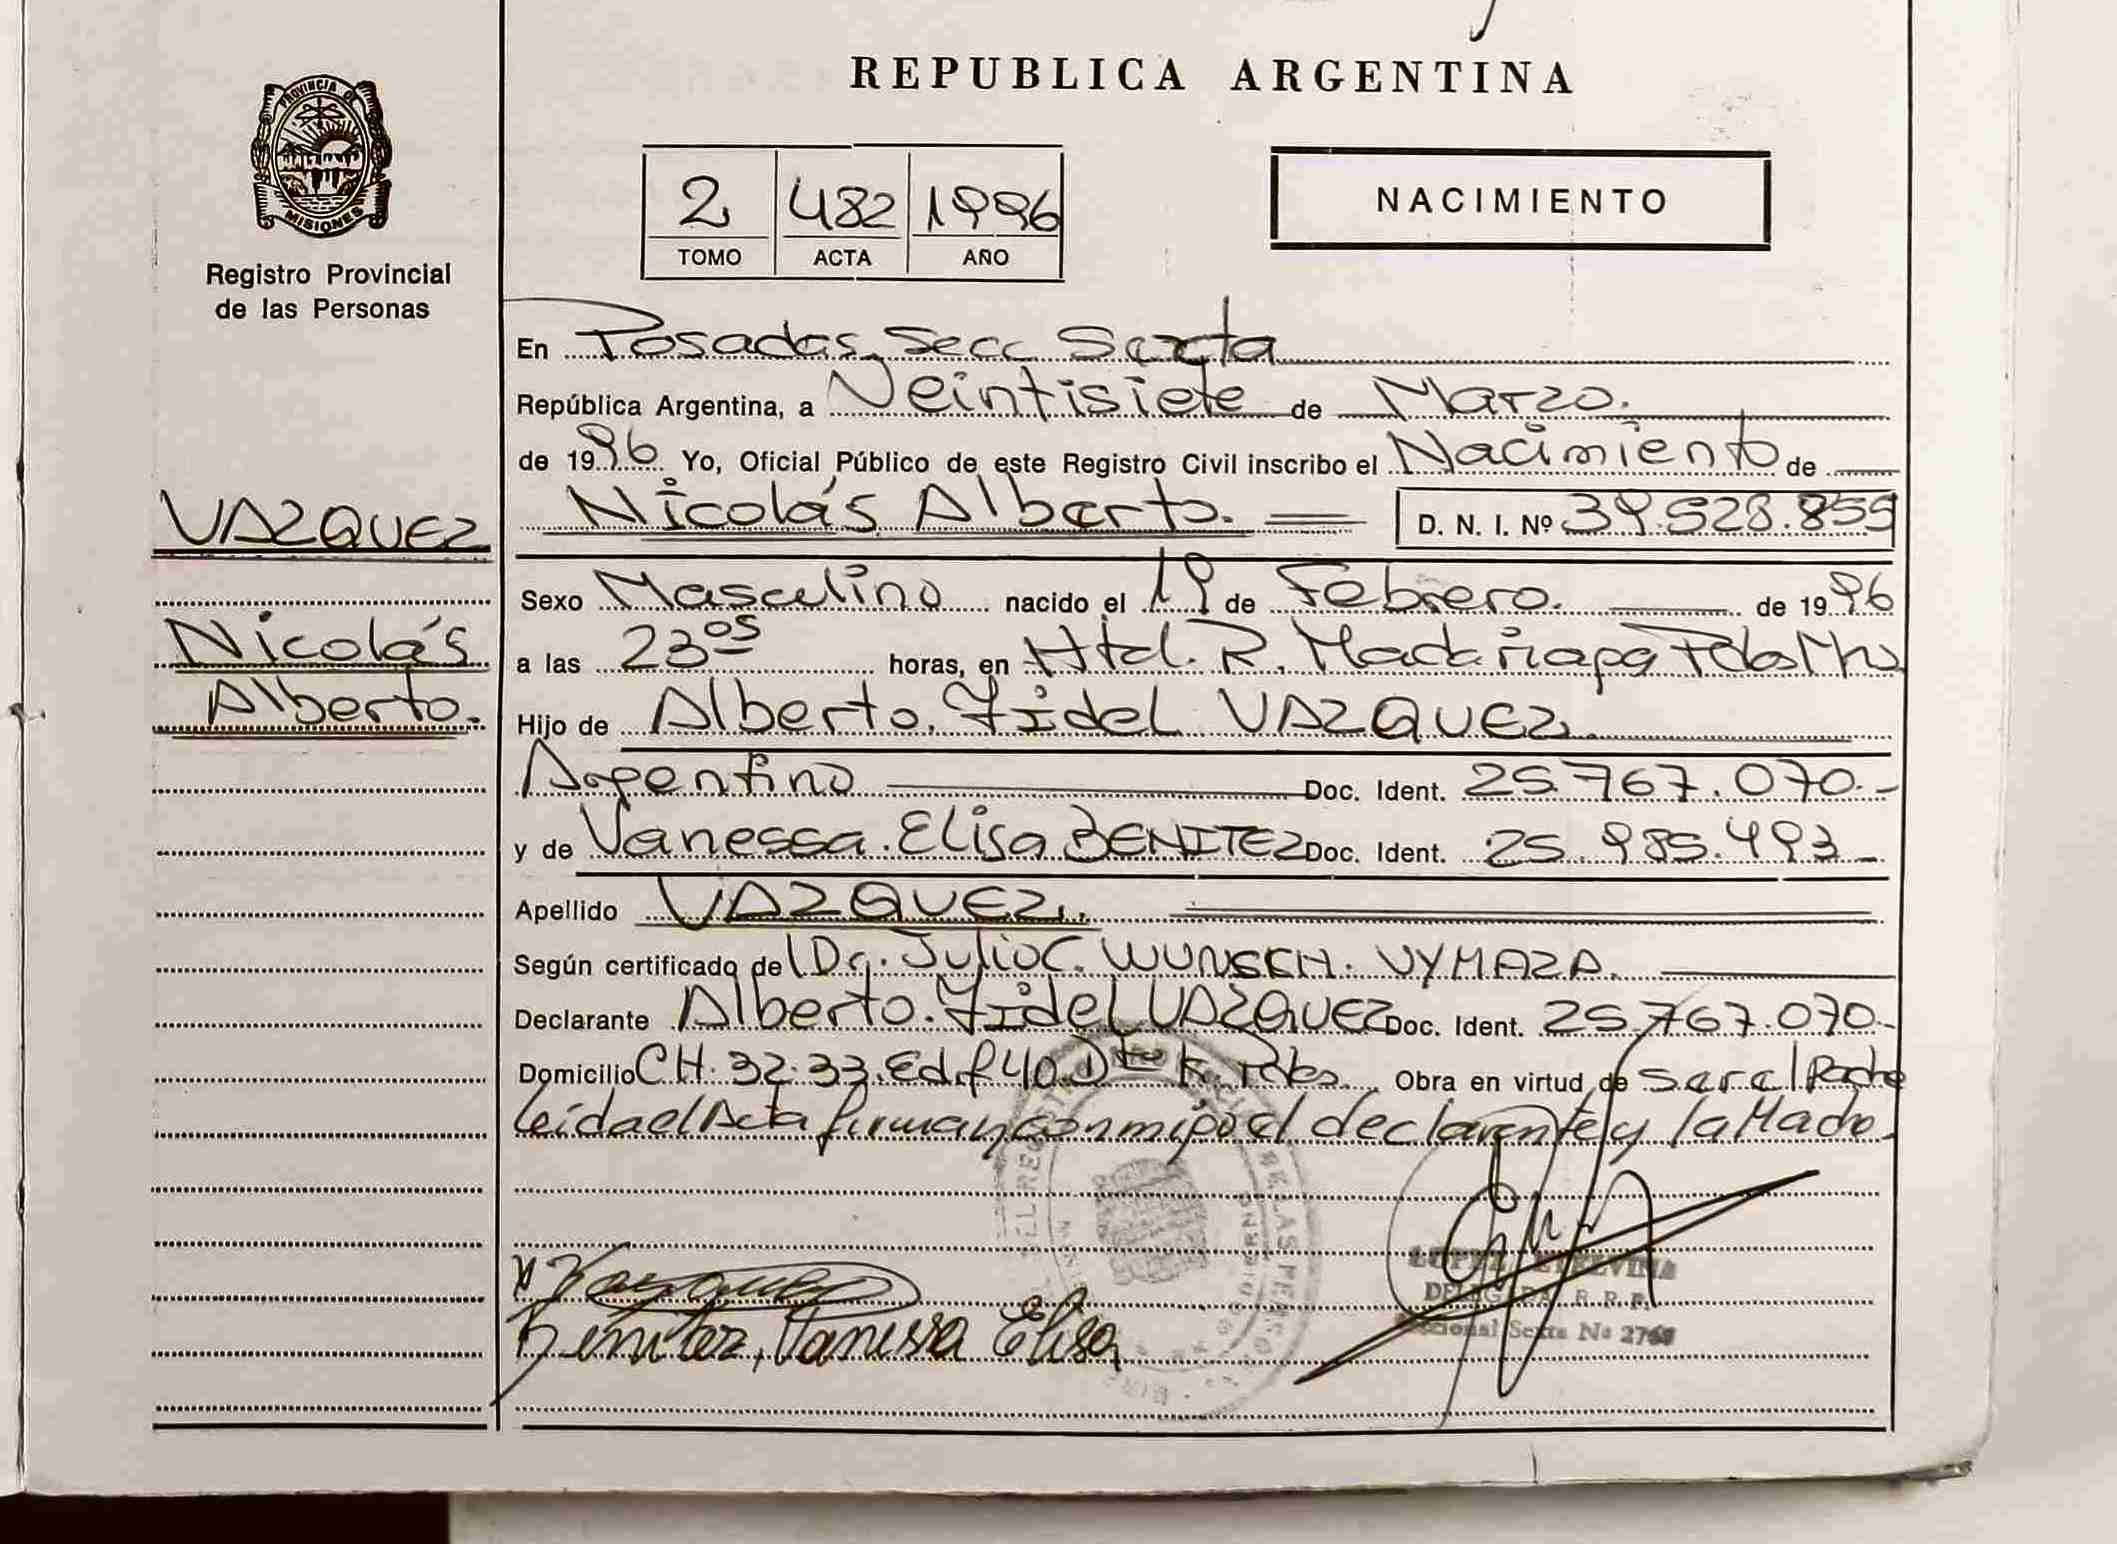 REPUBLICA ARGENTINA
PROVINCIA DE
MISIONES
Registro Provincial
de las Personas
2 482 1996
TOMO ACTA AÑO
NACIMIENTO
En Posadas, Secc Sexta
República Argentina, a Veintisiete de Marzo.
de 1996 Yo, Oficial Público de este Registro Civil inscribo el Nacimiento de
VAZQUEZ
Nicolás Alberto. D. N. I. Nº 39.528.855
Sexo Masculino nacido el 19 de Febrero. de 1996
Nicolás
a las 23 05 horas, en Htal. R. Madariaga Pdas Mnes
Alberto.
Hijo de Alberto. Fidel VAZQUEZ.
Argentino Doc. Ident. 25.767.070.-
y de Vanessa. Elisa BENITEZ Doc. Ident. 25.985.493 -
Apellido VAZQUEZ.
Según certificado de Dr. Julio C. WUNSCH. VYMAZA.
Declarante Alberto. Fidel VAZQUEZ Doc. Ident. 25.767.070-
Domicilio CH. 32.33. Edf 40. Dto K. Pdas. Obra en virtud de ser el Padre
leida el Acta firman con migo el declarante y la Madre.
Vazquez
Benitez, Vanessa Elisa
LOPEZ ETELVINA
DELEGADA R. R. P.
Seccional Sexta Nº 2768